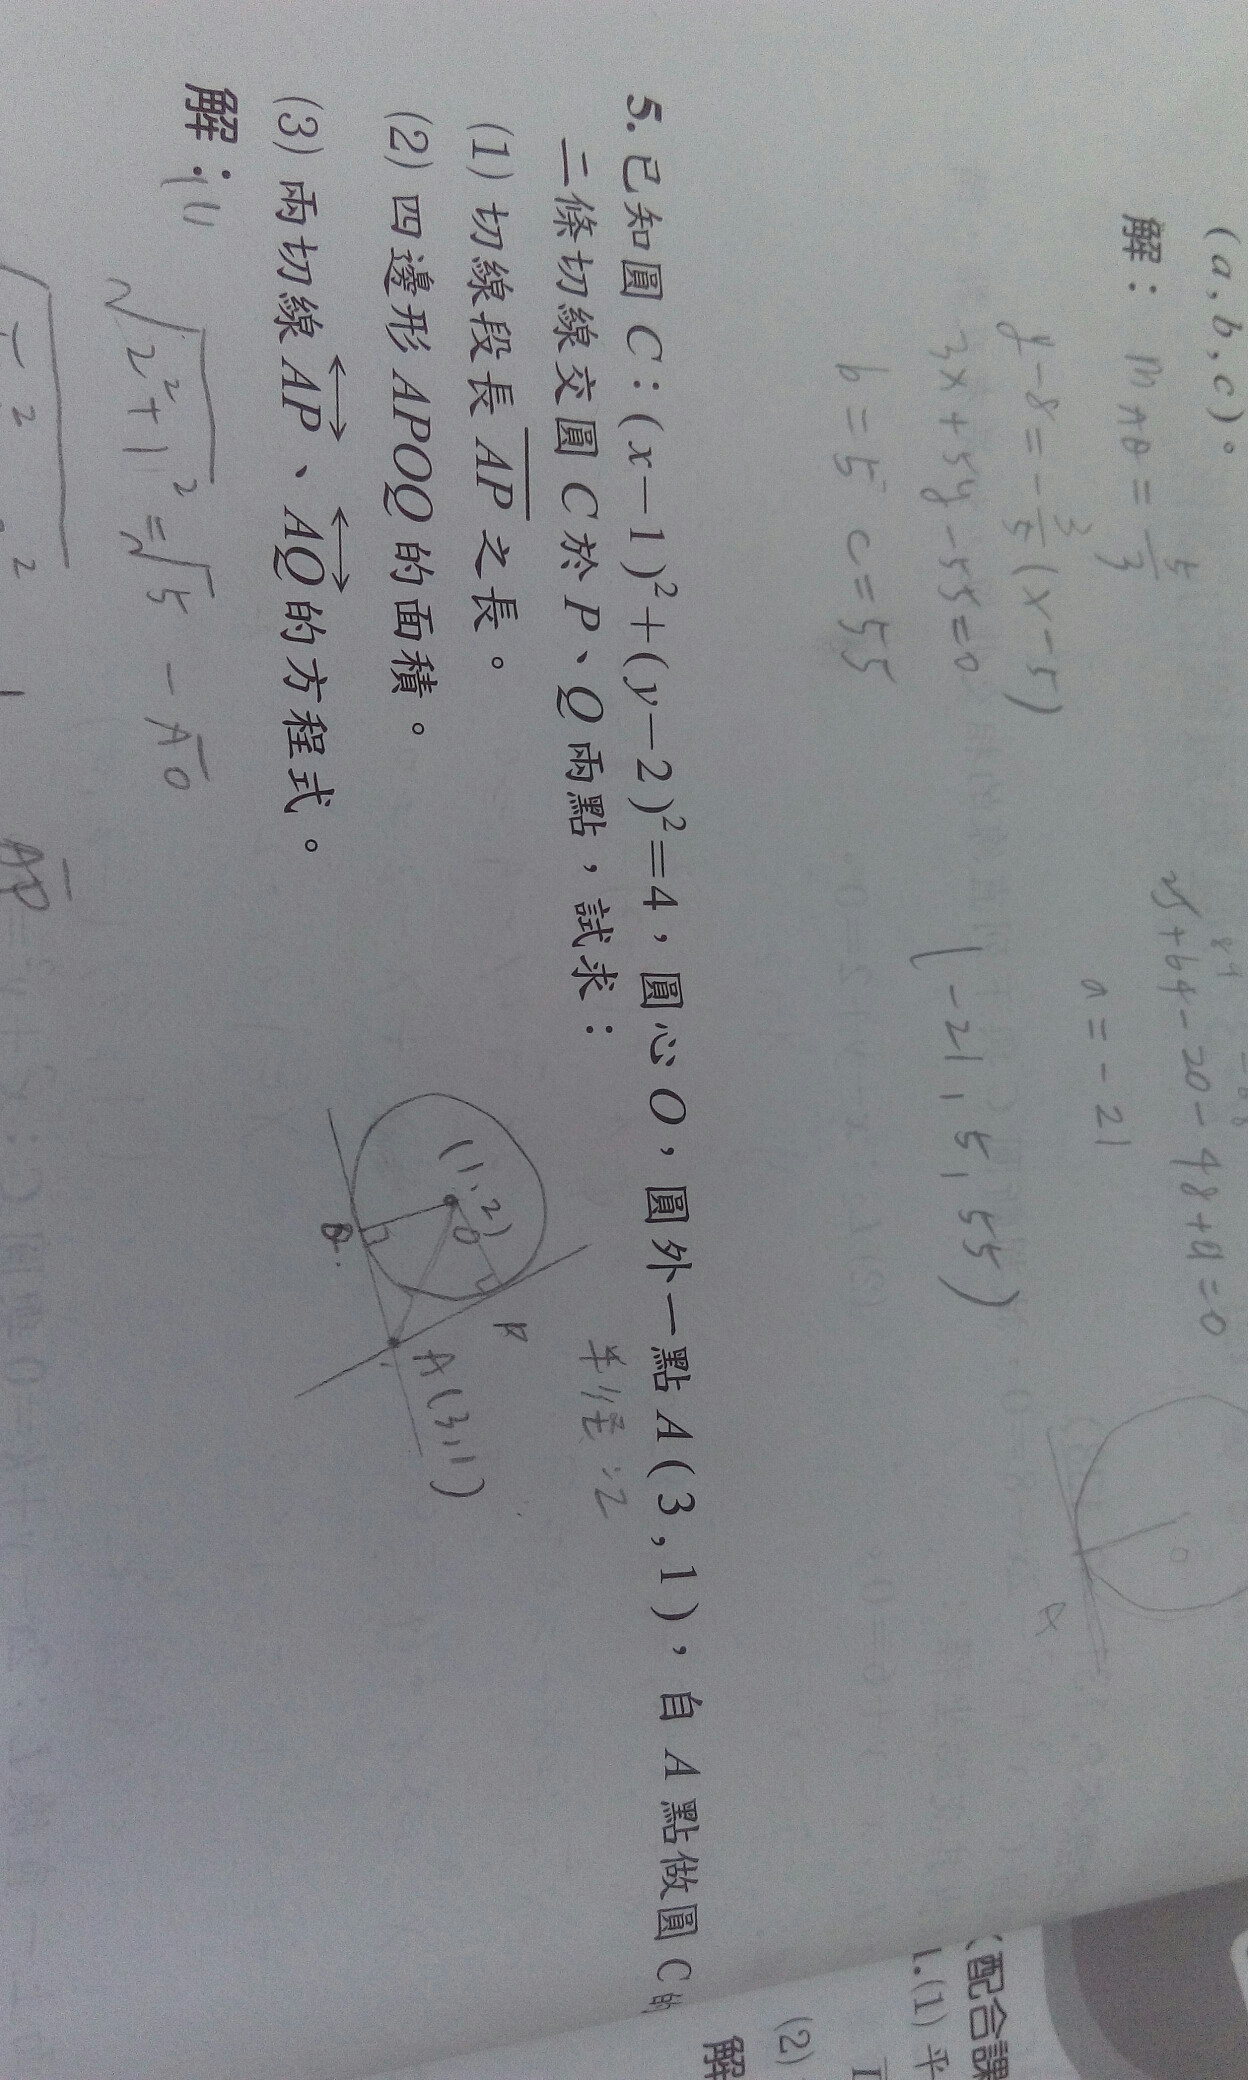 (a,b,c)。
25+64-20-48+a=0
解：m AQ = 5/3
a=-21
y-8=-3/5(x-5)
3x+5y-55=0
(-21,5,55)
b=5 c=55
5.已知圓 C：(x－1)²＋(y－2)²＝4，圓心 O，圓外一點 A(3,1)，自 A 點做圓 C的
二條切線交圓 C 於 P、Q 兩點，試求：
半徑:2
(1) 切線段長 AP 之長。
(2) 四邊形 APOQ 的面積。
(3) 兩切線 AP、AQ 的方程式。
(1,2)
O
P
Q
A(3,1)
解：(1)
√2²+1²=√5 - AO
AP
(配合課
1.(1) 平
(2)
解